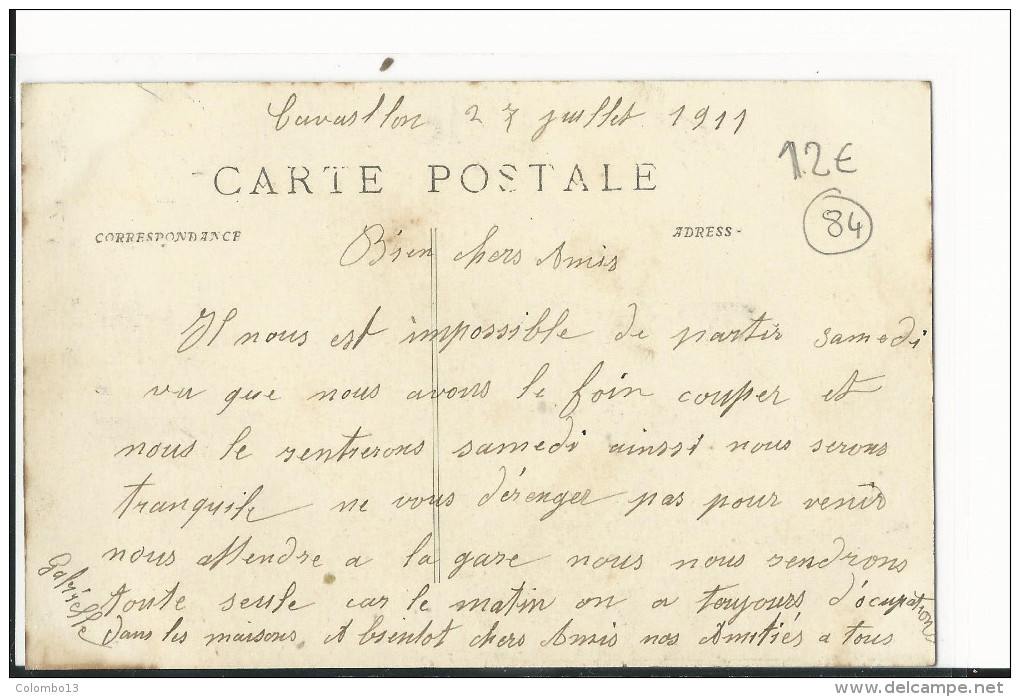 Cavaillon 27 juillet 1911
12€
CARTE POSTALE
84
CORRESPONDANCE
ADRESS-
Bien chers Amis
Il nous est impossible de partir samedi
vu que nous avons le foin couper et
nous le rentrerons samedi ainssi nous serons
tranquile ne vous dérenger pas pour venir
nous attendre a la gare nous nous rendrons
toute seule car le matin on a toujours d'ocupations
dans les maisons, A bientot chers Amis nos Amitiés a tous
Gabrielle
Colombo13
www.delcampe.net